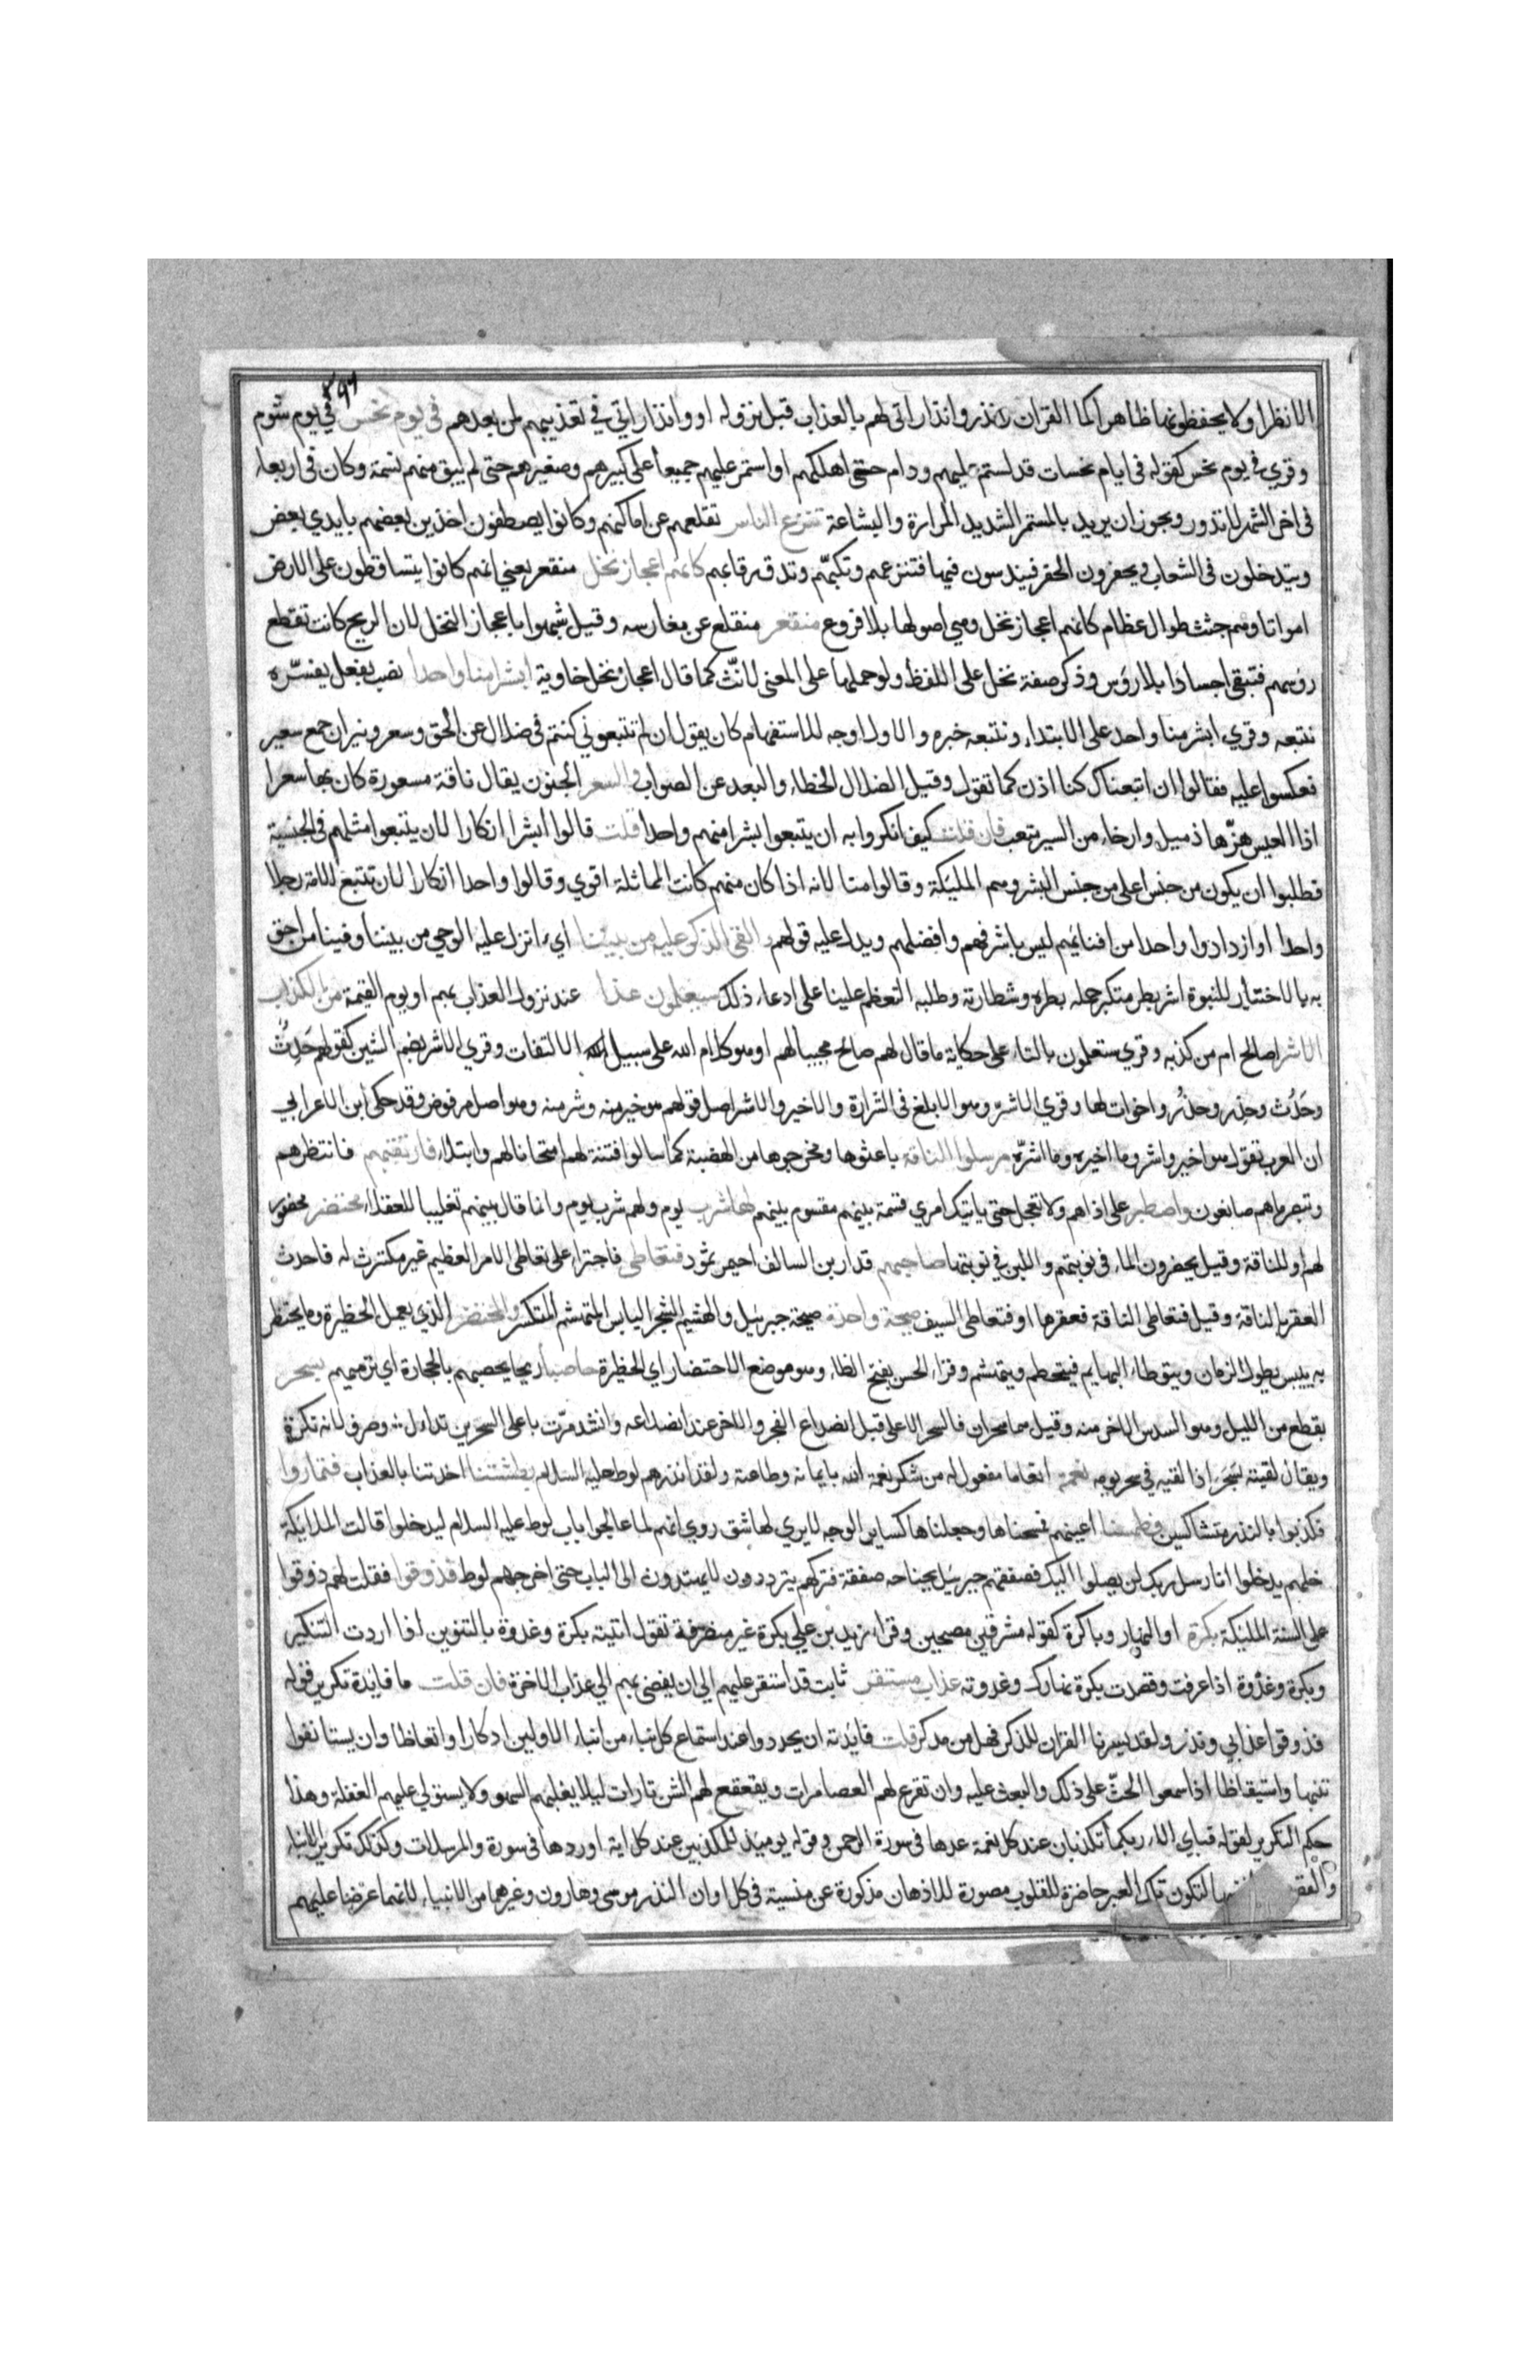 ٤٩٦
الا نظرا ولا يحفظونها ظاهرا كما القران ونذر وانذاراتى لهم بالعذاب قبل نزوله او وانذاراتي في تعذيبهم لمن بعدهم فى يوم نحس في يوم شوم
وقري في يوم نحس كقوله فى ايام نحسات قد استمر عليهم ودام حتى اهلكهم او استمر عليهم جميعا على كبيرهم وصغيرهم حتى لم يبق منهم نسمة وكان فى اربعاء
فى اخر الشهر لا تدور ويجوز ان يريد بالمستمر الشديد المرارة والبشاعة تنزع الناس تقلعهم عن اماكنهم وكانوا يصطفون اخذين بعضهم بايدي بعض
ويتدخلون فى الشعاب ويحفرون الحفر فيندسون فيها فتنزعهم وتكبهم وتدق رقابهم كانهم اعجاز نخل منقعر يعني انهم كانوا يتساقطون على الارض
امواتا وهم جثث طوال عظام كانهم اعجاز نخل وهي اصولها بلا فروع منقعر منقلع عن مغارسه وقيل شبهوا باعجاز النخل لان الريح كانت تقطع
روسهم فتبقى اجسادا بلا رؤس وذكر صفة نخل على اللفظ ولو حملها على المعنى لانّث كما قال اعجاز نخل خاوية ابشرا منا واحدا نصب بفعل يفسّره
نتبعه وقري ابشر منا واحد على الابتداء ونتبعه خبره والاول اوجه للاستفهام كان يقول ان لم تتبعوني كنتم فى ضلال عن الحق وسعر ونيران جمع سعير
فعكسوا عليه فقالوا ان اتبعناك كنا اذن كما تقول وقيل الضلال الخطاء والبعد عن الصواب والسعر الجنون يقال ناقة مسعورة كان بها سعرا
اذا العيس هزّها ذميل وارخاء من السير متعب فان قلت كيف انكروا به ان يتبعوا بشرا منهم واحدا قلت قالوا ابشرا انكارا لان يتبعوا مثلهم فى الجنسية
فطلبوا ان يكون من جنس اعلى من جنس البشر وهم المليكة وقالوا منا لانه اذا كان منهم كانت المماثلة اقوي وقالوا واحدا انكارا لان تتبع الامة رجلا
واحدا او ازدادوا واحدا من افنائهم ليس باشرفهم وافضلهم ويدل عليه قولهم ءالقى الذكر عليه من بيننا اي ءانزل عليه الوحي من بيننا وفينا من احق
به بالاختيار للنبوة اشر بطر متكبر حمله بطره وشطارته وطلبه التعظم علينا على ادعاء ذلك سيعلمون غدا عند نزول العذاب بهم او يوم القيمة من الكذاب
الاشر اصالح ام من كذبه وقري ستعلمون بالتاء على حكاية ما قال لهم صالح مجيبا لهم او هو كلام الله على سبيل الالتفات وقري الاشر بضم الشين كقولهم حَدِثٌ
وحَدُث وحذِر وحذُر واخوات لها وقري الاشرّ وهو الابلغ فى الشرارة والاخير والاشر اصل قولهم هو خير منه وشر منه وهو اصل مرفوض وقد حكى ابن الاعرابي
ان العرب تقول هو اخير واشر وما اخيره وما اشرّه مرسلوا الناقة باعثوها ومخرجوها من الهضبة كما سالوا فتنة لهم امتحانا لهم وابتلاء فارتقبهم فانتظرهم
وتبصر ما هم صانعون واصطبر على اذاهم ولا تعجل حتى ياتيك امري قسمة بينهم مقسوم بينهم لها شرب يوم ولهم شرب يوم وانما قال بينهم تغليبا للعقلاء محتضر محضور
لهم او للناقة وقيل يحضرون الماء فى نوبتهم واللبن في نوبتها صاحبهم قدار بن سالف احيمر ثمود فتعاطى فاجترا على تعاطى الامر العظيم غير مكترث له فاحدث
العقر بالناقة وقيل فتعاطى الناقة فعقرها او فتعاطى السيف صيحة واحدة صيحة جبريل والهشيم الشجر اليابس المتهشم المتكسر والمحتضر الذي يعمل الحظيرة وما يحتظر
به ييبس بطول الزمان ويتوطاه البهايم فيتحطم ويتهشم وقراء الحسن بفتح الظاء وهو موضع الاحتضار اي الحظيرة حاصبا ريحا يحصبهم بالحجارة اي ترميهم بسحر
بقطع من الليل وهو السدس الاخر منه وقيل هما سحران فالسحر الاعلى قبل انصداع الفجر والاخر عند انصداعه وانشد مرّت باعلى السحرين تداءل وصرف لانه نكرة
ويقال لقيته سَحَرَ اذا لقيه في سحر يومه نعمة انعاما مفعول له من شكر نعمة الله بايمانه وطاعته ولقد انذرهم لوط عليه السلام بطشتنا اخذتنا بالعذاب فتماروا
فكذبوا بالنذر متشاكسين فطمسنا اعينهم فمسحناها وجعلناها كساير الوجه لا يري لها شق روي انهم لما عالجوا باب لوط عليه السلام ليدخلوا قالت الملايكة
خلهم يدخلوا انا رسل ربك لن يصلوا اليك فصفقهم جبريل بجناحه صفقة فتركهم يترددون لا يهتدون الى الباب حتى اخرجهم لوط فذوقوا فقلت لهم ذوقوا
على السنة المليكة بكرة اول النهار وباكرة كقوله مشرقين مصبحين وقراء زيد بن علي بكرة غير منصرفة تقول اتيته بكرة وغدوة بالتنوين اذا اردت التنكير
وبكرة وغدوة اذا عرفت وقصدت بكرة نهارك وغدوته عذاب مستقر ثابت قد استقر عليهم الى ان يفضى بهم الي عذاب الاخرة فان قلت ما فايدة تكرير قوله
فذوقوا عذابي ونذر ولقد يسرنا القران للذكر فهل من مدكر قلت فايدته ان يجددوا عند استماع كل نباء من انباء الاولين ادكارا واتعاظا وان يستانفوا
تنبها واستيقاظا اذا سمعوا الحثّ على ذلك والبعث عليه وان تقرع لهم العصا مرات ويقعقع لهم الشن تارات ليلا يغلبهم السهو ولا يستولي عليهم الغفلة وهذا
حكم التكرير لقوله فباي الاء ربكما تكذبان عند كل نعمة عدها فى سورة الرحمن وقوله يوميذ للمكذبين عند كل اية اوردها فى سورة والمرسلات وكذلك تكرير الانباء
والقصص لتكون تلك العبر حاضرة للقلوب مصورة للاذهان مذكورة غير منسية فى كل اوان النذر موسى وهارون وغيرهما من الانبياء لانهما عرضا عليهم